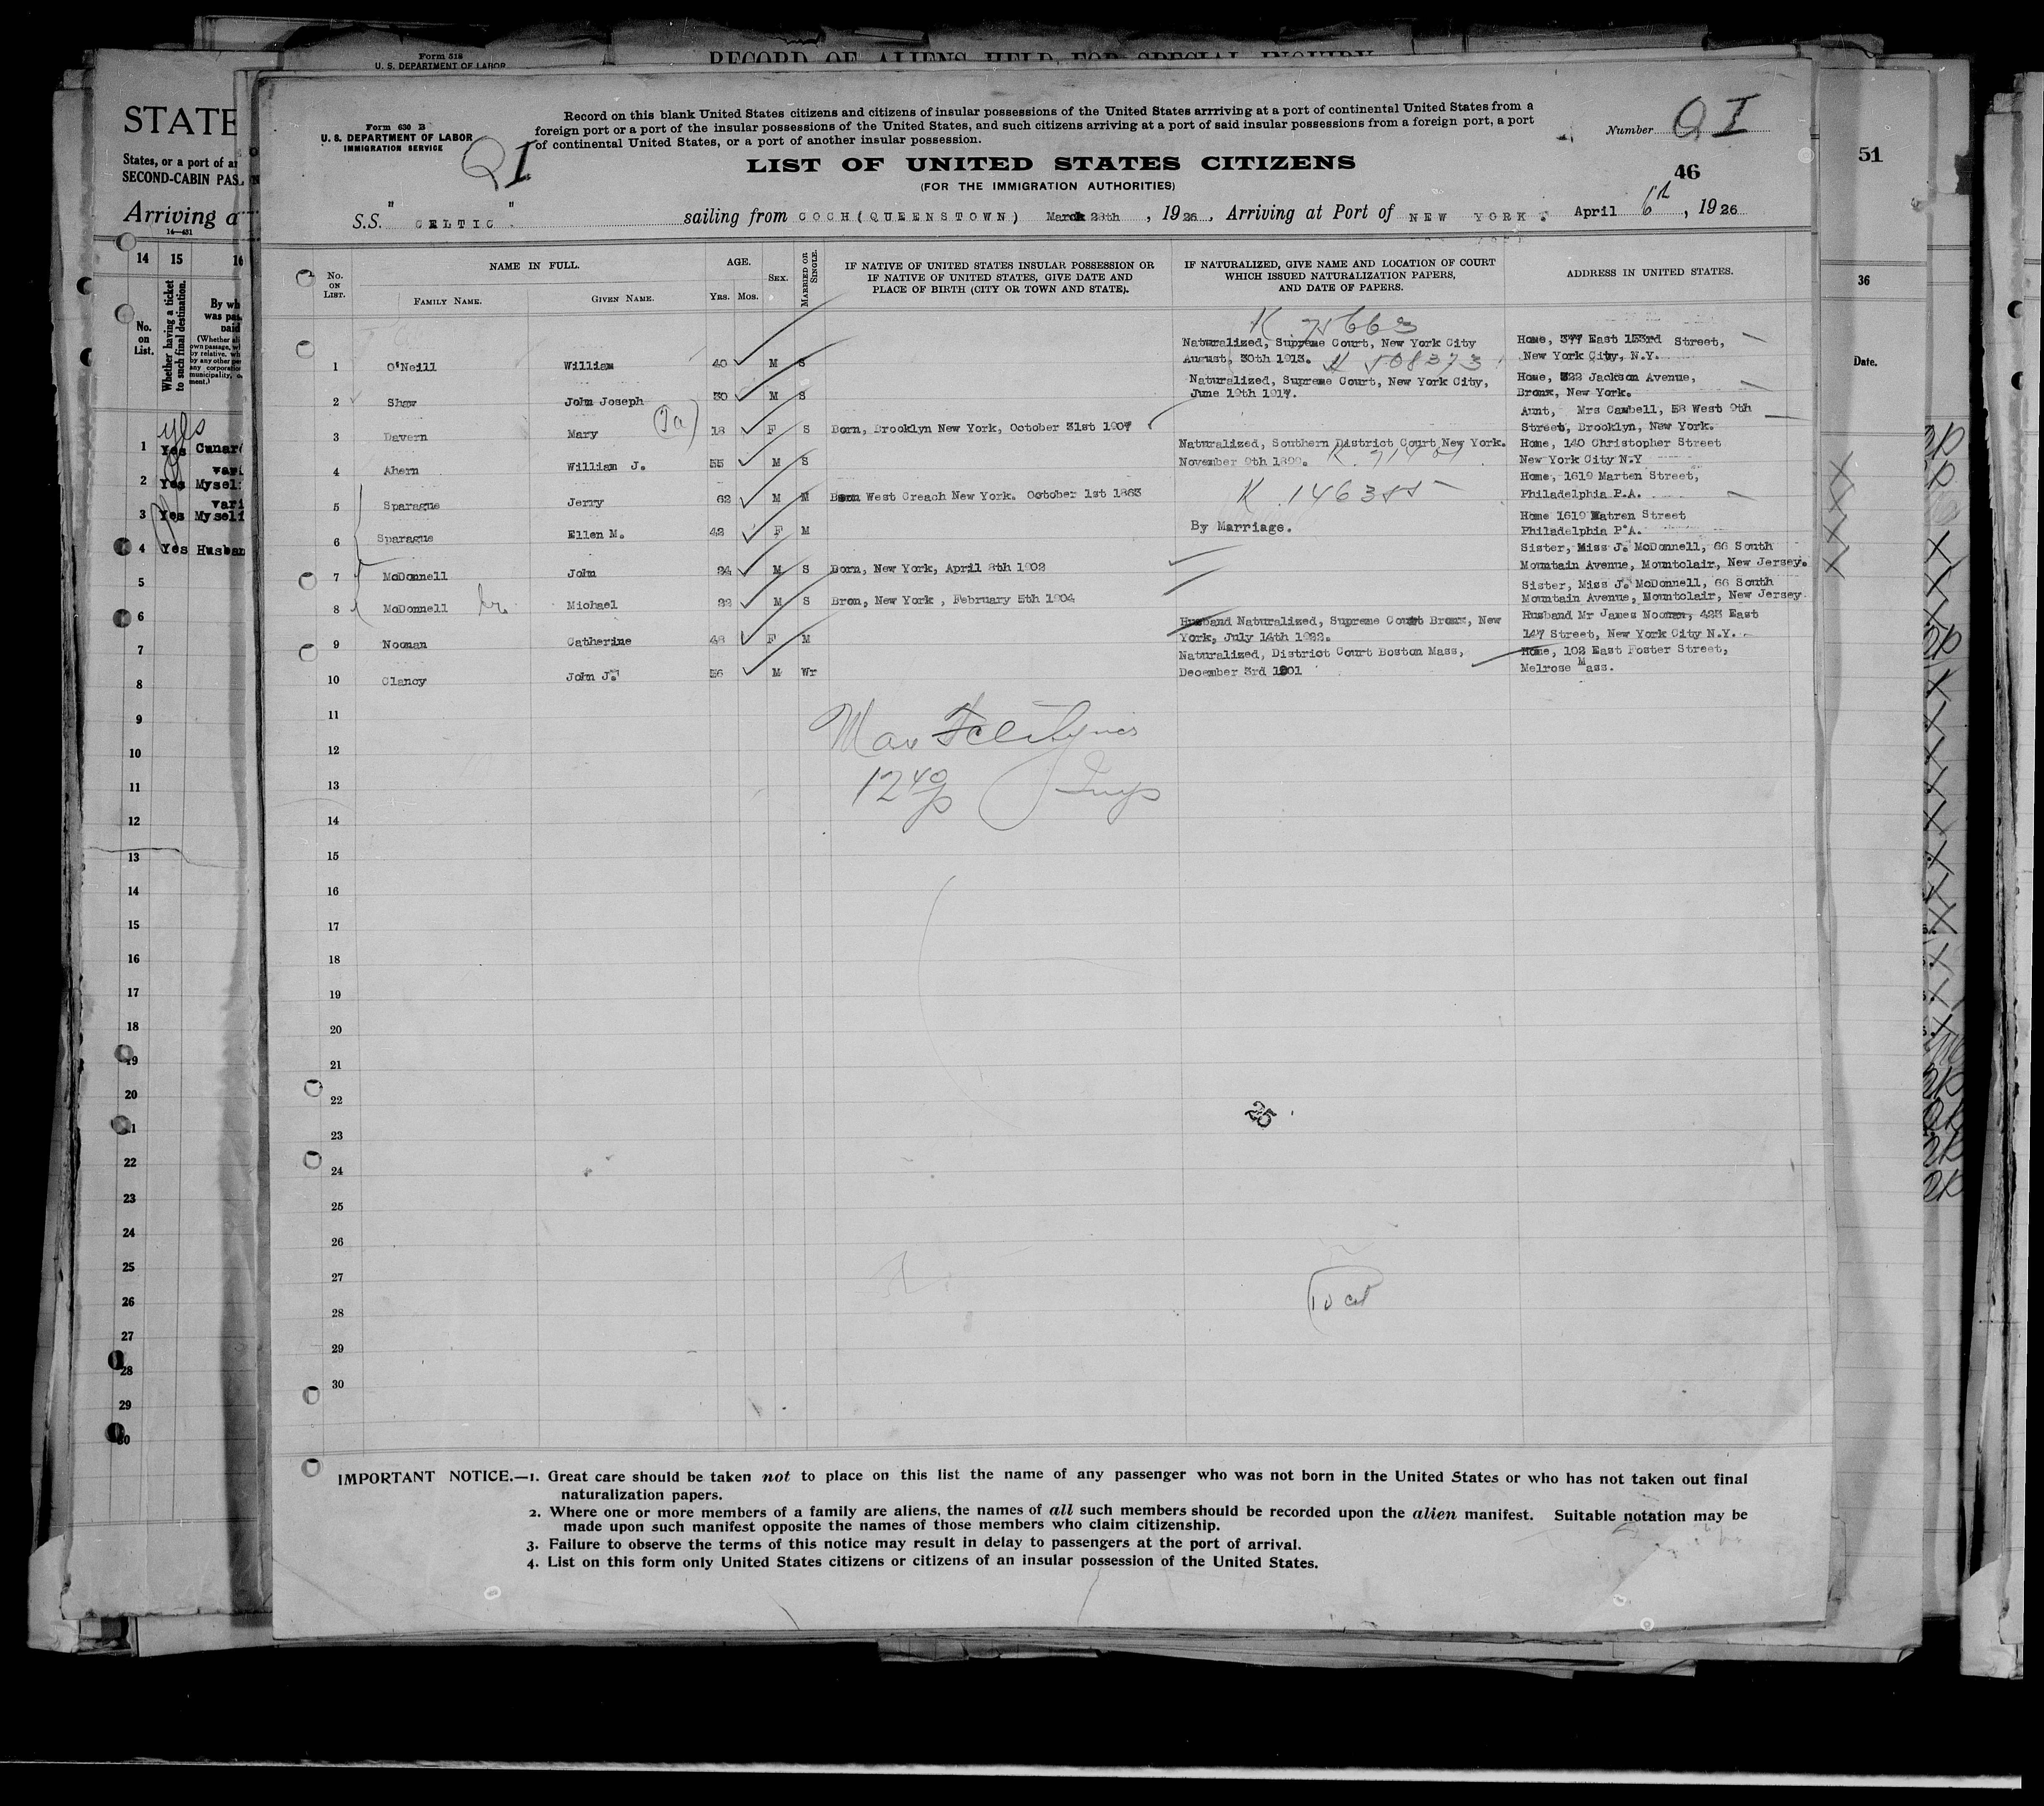 Form 518
U. S. DEPARTMENT OF LABOR
RECORD OF ALIENS HELD FOR SPECIAL INQUIRY
STATE
States, or a port of
SECOND-CABIN PAS
Arriving a
14—431
14 15 16
No. on List.
Whether having a ticket to such final destination.
By wh
was pas
paid
yes
1 Yes Cunar
2 Yes Mysel
3 Yes Myself
4 Yes Husban
5
6
7
8
9
10
11
12
13
14
15
16
17
18
19
20
21
22
23
24
25
26
27
28
29
30
Form 630 B
U. S. DEPARTMENT OF LABOR
IMMIGRATION SERVICE
QI
Record on this blank United States citizens and citizens of insular possessions of the United States arrriving at a port of continental United States from a
foreign port or a port of the insular possessions of the United States, and such citizens arriving at a port of said insular possessions from a foreign port, a port
of continental United States, or a port of another insular possession.
Number QI
LIST OF UNITED STATES CITIZENS
46
(FOR THE IMMIGRATION AUTHORITIES)
S.S. "CELTIC" sailing from COCH (QUEENSTOWN) March 28th, 1926, Arriving at Port of NEW YORK. April 6th, 1926
No. on List.
NAME IN FULL.
FAMILY NAME. GIVEN NAME.
AGE.
Yrs. Mos.
SEX.
MARRIED OR SINGLE.
IF NATIVE OF UNITED STATES INSULAR POSSESSION OR
IF NATIVE OF UNITED STATES, GIVE DATE AND
PLACE OF BIRTH (CITY OR TOWN AND STATE).
IF NATURALIZED, GIVE NAME AND LOCATION OF COURT
WHICH ISSUED NATURALIZATION PAPERS,
AND DATE OF PAPERS.
ADDRESS IN UNITED STATES.
K. 75663
Naturalized, Supreme Court, New York City Home, 377 East 153rd Street,
1 O'Neill William 40 M S August, 30th 1913. K 508373 New York City, N.Y.
Naturalized, Supreme Court, New York City, Home, 322 Jackson Avenue,
2 Shaw John Joseph 30 M S June 19th 1917. Bronx, New York.
Aunt, Mrs Cambell, 58 West 9th
3 Davern Mary 18 F S Born, Brooklyn New York, October 31st 1907 Street, Brooklyn, New York.
Naturalized, Southern District Court New York. Home, 140 Christopher Street
4 Ahern William J. 55 M S November 9th 1899. New York City N.Y
Home, 1619 Marten Street,
5 Sparague Jerry 62 M M Born West Creach New York. October 1st 1863 K. 146355 Philadelphia P.A.
Home 1619 Matren Street
6 Sparague Ellen M. 42 F M By Marriage. Philadelphia P.A.
Sister, Miss J. McDonnell, 66 South
7 McDonnell John 24 M S Born, New York, April 8th 1902 Mountain Avenue, Mountclair, New Jersey.
Sister, Miss J. McDonnell, 66 South
8 McDonnell Michael 22 M S Bron, New York , February 5th 1904 Mountain Avenue, Mountclair, New Jersey
Husband Naturalized, Supreme Court Bronx, New Husband Mr James Noonan, 423 East
9 Noonan Catherine 48 F M York, July 14th 1922. 147 Street, New York City N.Y.
Naturalized, District Court Boston Mass, Home, 102 East Foster Street,
10 Clancy John J. 56 M Wr December 3rd 1901 Melrose Mass.
11
12
13
14
15
16
17
18
19
20
21
22
25
23
24
25
26
27
28
29
30
IMPORTANT NOTICE.—1. Great care should be taken not to place on this list the name of any passenger who was not born in the United States or who has not taken out final
naturalization papers.
2. Where one or more members of a family are aliens, the names of all such members should be recorded upon the alien manifest. Suitable notation may be
made upon such manifest opposite the names of those members who claim citizenship.
3. Failure to observe the terms of this notice may result in delay to passengers at the port of arrival.
4. List on this form only United States citizens or citizens of an insular possession of the United States.
51
36
Date.